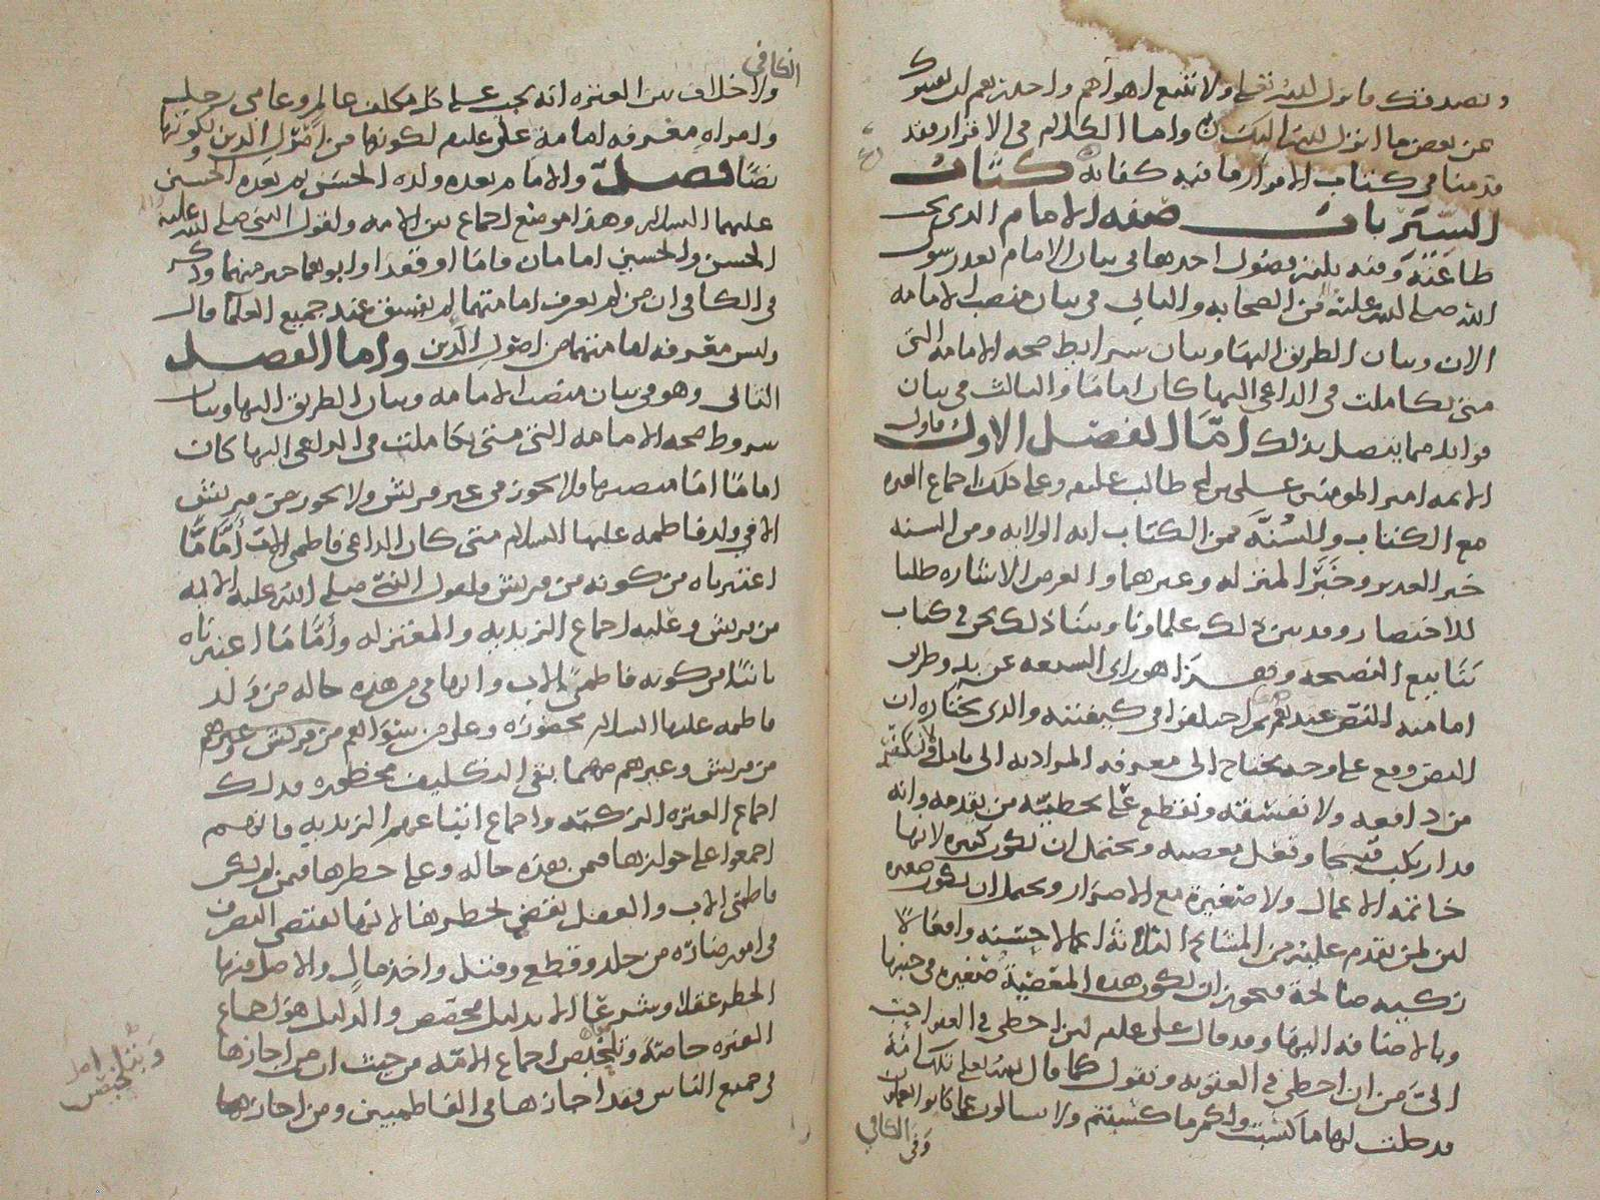 ويصدفنك ما نزل الله تعالى ولا تتبع اهواهم واحذرهم ان يفتنوك
عن بعض ما انزل الله اليك واما الكلام في الاقرار فقد
قدمنا في كتاب الاقرار ما فيه كفاية كتاب
السير باب صفة الامام الذي يجب
طاعته وفيه ثلاثة فصول احدها في بيان الامام بعد رسول
الله صلى الله عليه من الصحابه والثاني في بيان منصب الامامه
الان وبيان الطريق اليها وبيان شرايط صحه الامامه التي
متى تكاملت في الداعي اليها كان اماما والثالث في بيان
فوايد مما يتصل بذلك اما الفصل الاول فاول
الايمه امير المومنين علي بن ابي طالب عليلم وعلى ذلك اجماع العتره
مع الكتاب والسنة فمن الكتاب ايه الولايه ومن السنه
خبر الغدير وخبر المنزله وغيرهما والغرض الاشاره طلبا
للاختصار وقد بين ذلك علماونا وبينا ذلك نحن في كتاب
ينابيع النصيحه وهذا هو راي الشيعه عن يد وطريق
امامته النص عندهم ثم اختلفوا في كيفيته والذي نختاره ان
النص وقع على وجه يحتاج الى معرفه المراد به الى تامل
من دافعه ولا نفسقه ونقطع على تخطيته من تقدمه وانه
قد ارتكب قبيحا وفعل معصيه ويحتمل ان تكون كبيره لانها
خاتمه الاعمال ولا صغيرة مع الاصرار ويحتمل ان تكون صغيره
لان لمن تقدم عليه من المشايخ الثلاثة اعمالا حسنه وافعالا
زكيه صالحة فيجوز ان تكون هذه المعصية صغيره في جنبها
وبالاضافه اليها وقد قال علي عليلم لان اخطي في العفو احب
الي من ان اخطي في العقوبه ونقول كما قال الله تعالى تلك امة
قد خلت لها ما كسبت ولكم ما كسبتم ولا تسالون عما كانوا يعملون
وفي الكافي
الكافي
ولا خلاف بين العتره انه يجب على كل مكلف عالم وعامي رجل
وامراه معرفه امامة علي عليلم لكونها من اصول الدين
نصا فصل والامام بعده ولده الحسن ثم بعده الحسين
عليهما السلام وهذا موضع اجماع بين الامه ولقول النبي صلى الله عليه
الحسن والحسين امامان قاما او قعدا وابوهما خير منهما وذكر
في الكافي ان من لم يعرف امامتهما لم يفسق عند جميع العلما قال
وليس معرفه امامتهما من اصول الدين واما الفصل
الثاني وهو في بيان منصب الامامه وبيان الطريق اليها وبيان
شروط صحه الامامه التي متى تكاملت في الداعي اليها كان
اماما اما منصبها فلا يجوز في غير قريش ولا يجوز من قريش
الا في ولد فاطمه عليها السلام متى كان الداعي فاطمي الاب أما ما
اعتبرناه من كونه من قريش فلقول النبي صلى الله عليه الايمه
من قريش وعليه اجماع الزيديه والمعتزله وأما ما اعتبرناه
ثانيا من كونه فاطمي الاب وانها في من هذه حاله من ولد
فاطمه عليها السلام محصوره وعلى من سواهم من قريش وغيرهم
من قريش وغيرهم مهما بقي التكليف محظوره فذلك
اجماع العتره الزكيه واجماع اتباعهم الزيديه فانهم
اجمعوا على جوازها فيمن هذه حاله وعلى حظرها فيمن لم يكن
فاطمي الاب والعقل يقتضي بحظرها لانها تقتضي التصرف
في امور ضارة من جلد وقطع وقتل واخذ مال والاصل فيها
الحظر عقلا وشرعا الا بدليل مخصص والدليل هو اجماع
العتره خاصة وتلخيص اجماع الامة من حيث ان من اجازها
في جميع الناس فقد اجازها في الفاطميين ومن اجازها